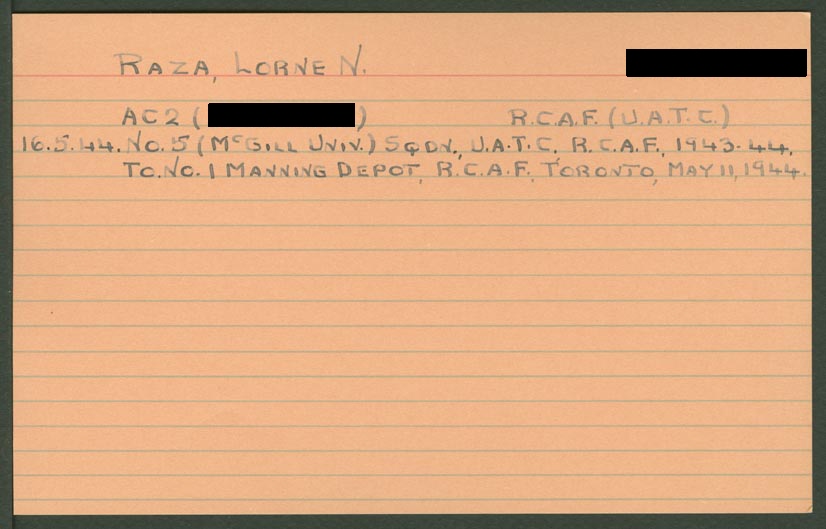 RAZA, LORNE N.
AC2 ( ) R.C.A.F. (U.A.T.C.)
16.5.44. No. 5 (McGILL UNIV.) SQDN., U.A.T.C. R.C.A.F., 1943-44.
To. No. 1 MANNING DEPOT, R.C.A.F. TORONTO, MAY 11, 1944.